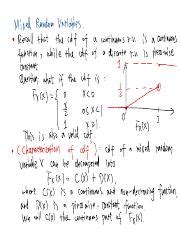 Mixed Random Variables
• Recall that the cdf of a continuous r.v. is a continuous
function, while the cdf of a discrete r.v. is piecewise
constant.
Question: what if the cdf is:
F_X(x) = { 0 x<0
x/2 0≤x<1
1 x≥1
This is also a valid cdf.
1
1/2
1
F_X(x)
• (Characterization of cdf): cdf of a mixed random
variable X can be decomposed into
F_X(x) = C(x) + D(x),
where C(x) is a continuous and non-decreasing function,
and D(x) is a piecewise-constant function.
We call C(x) the continuous part of F_X(x).